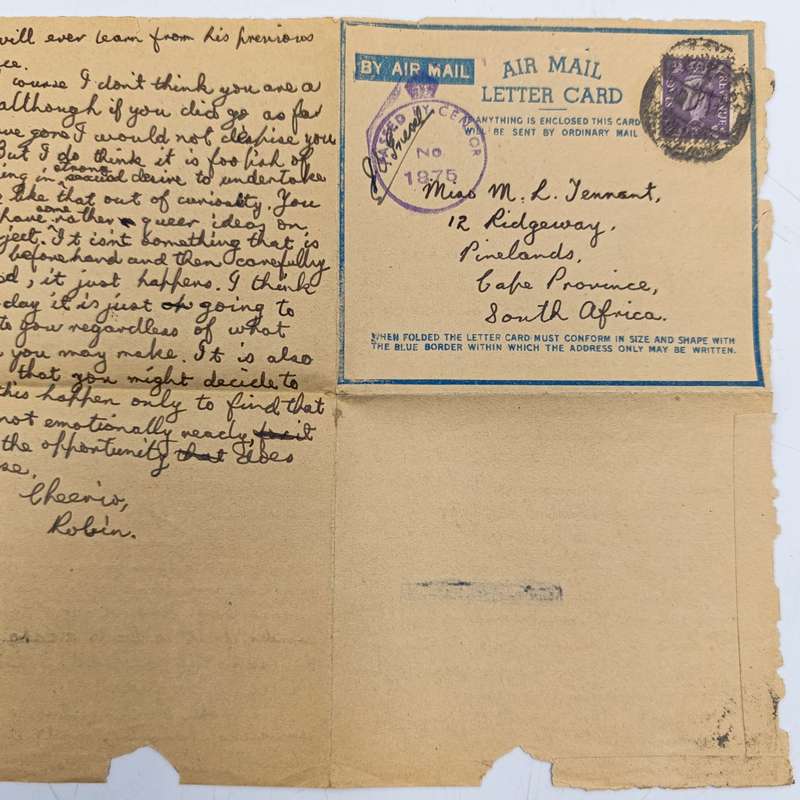 will ever learn from his previous
course I don't think you are a
although if you did go as far
gone I would not despise you
But I do think it is foolish of
strong
in desire to undertake
like that out of curiosity. You
some
have rather queer ideas on
It isn't something that is
beforehand and then carefully
it just happens. I think
day it is just going to
to you regardless of what
you may make. It is also
that you might decide to
this happen only to find that
not emotionally ready, for it
the opportunity that does
Cheerio,
Robin.
BY AIR MAIL
AIR MAIL
LETTER CARD
IF ANYTHING IS ENCLOSED THIS CARD
WILL BE SENT BY ORDINARY MAIL
PASSED BY CENSOR
No
1975
Miss M. L. Tennant,
12 Ridgeway,
Pinelands,
Cape Province,
South Africa.
WHEN FOLDED THE LETTER CARD MUST CONFORM IN SIZE AND SHAPE WITH
THE BLUE BORDER WITHIN WHICH THE ADDRESS ONLY MAY BE WRITTEN.